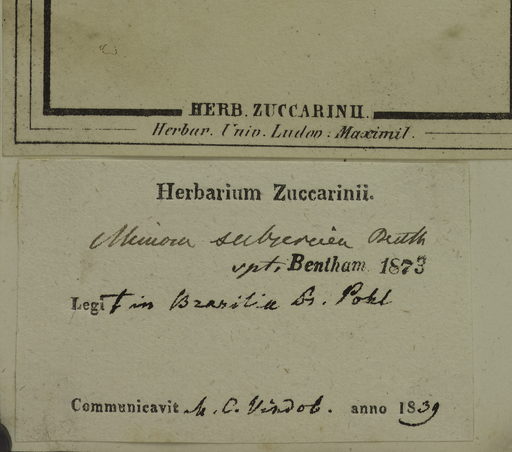 HERB. ZUCCARINII.
Herbar. Univ. Ludov. Maximil.
Herbarium Zuccarinii.
Mimosa subsericea Benth
spt. Bentham 1873
Legit in Brasilia Dr. Pohl
Communicavit M. C. Vindob. anno 1839